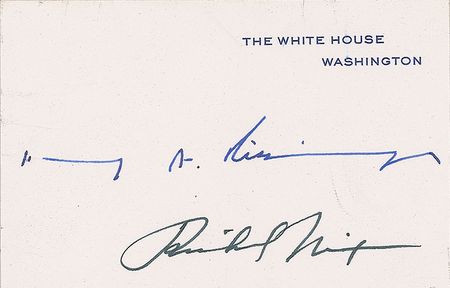 THE WHITE HOUSE
WASHINGTON
Henry A. Kissinger
Richard Nixon